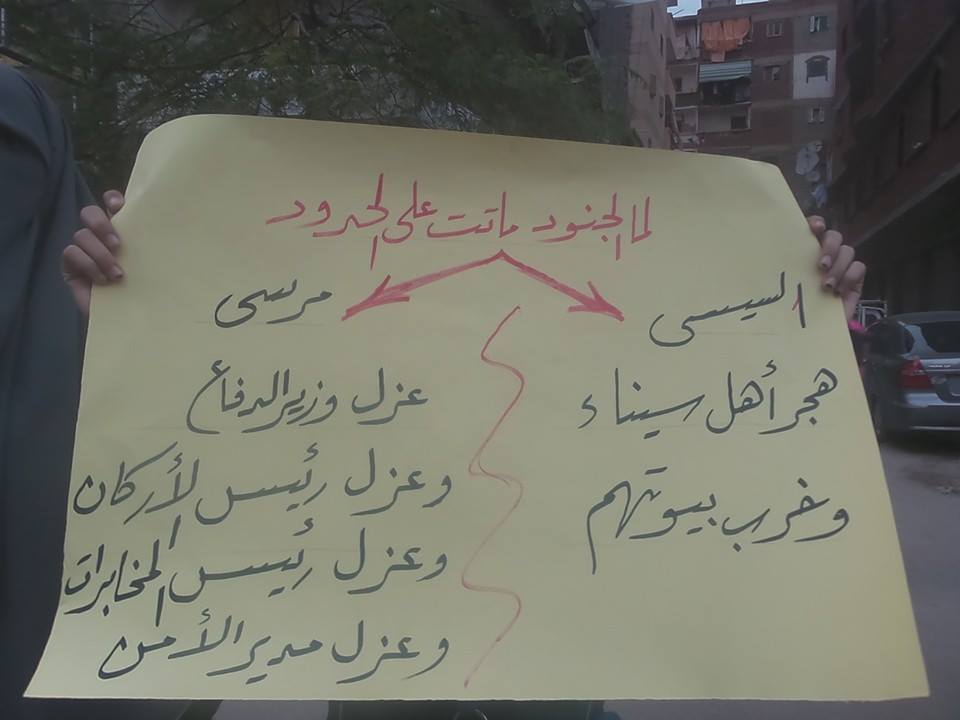 لما الجنود ماتت على الحدود
السيسى
هجر أهل سيناء
وخرب بيوتهم
مرسى
عزل وزير الدفاع
وعزل رئيس الأركان
وعزل رئيس المخابرات
وعزل مدير الأمن